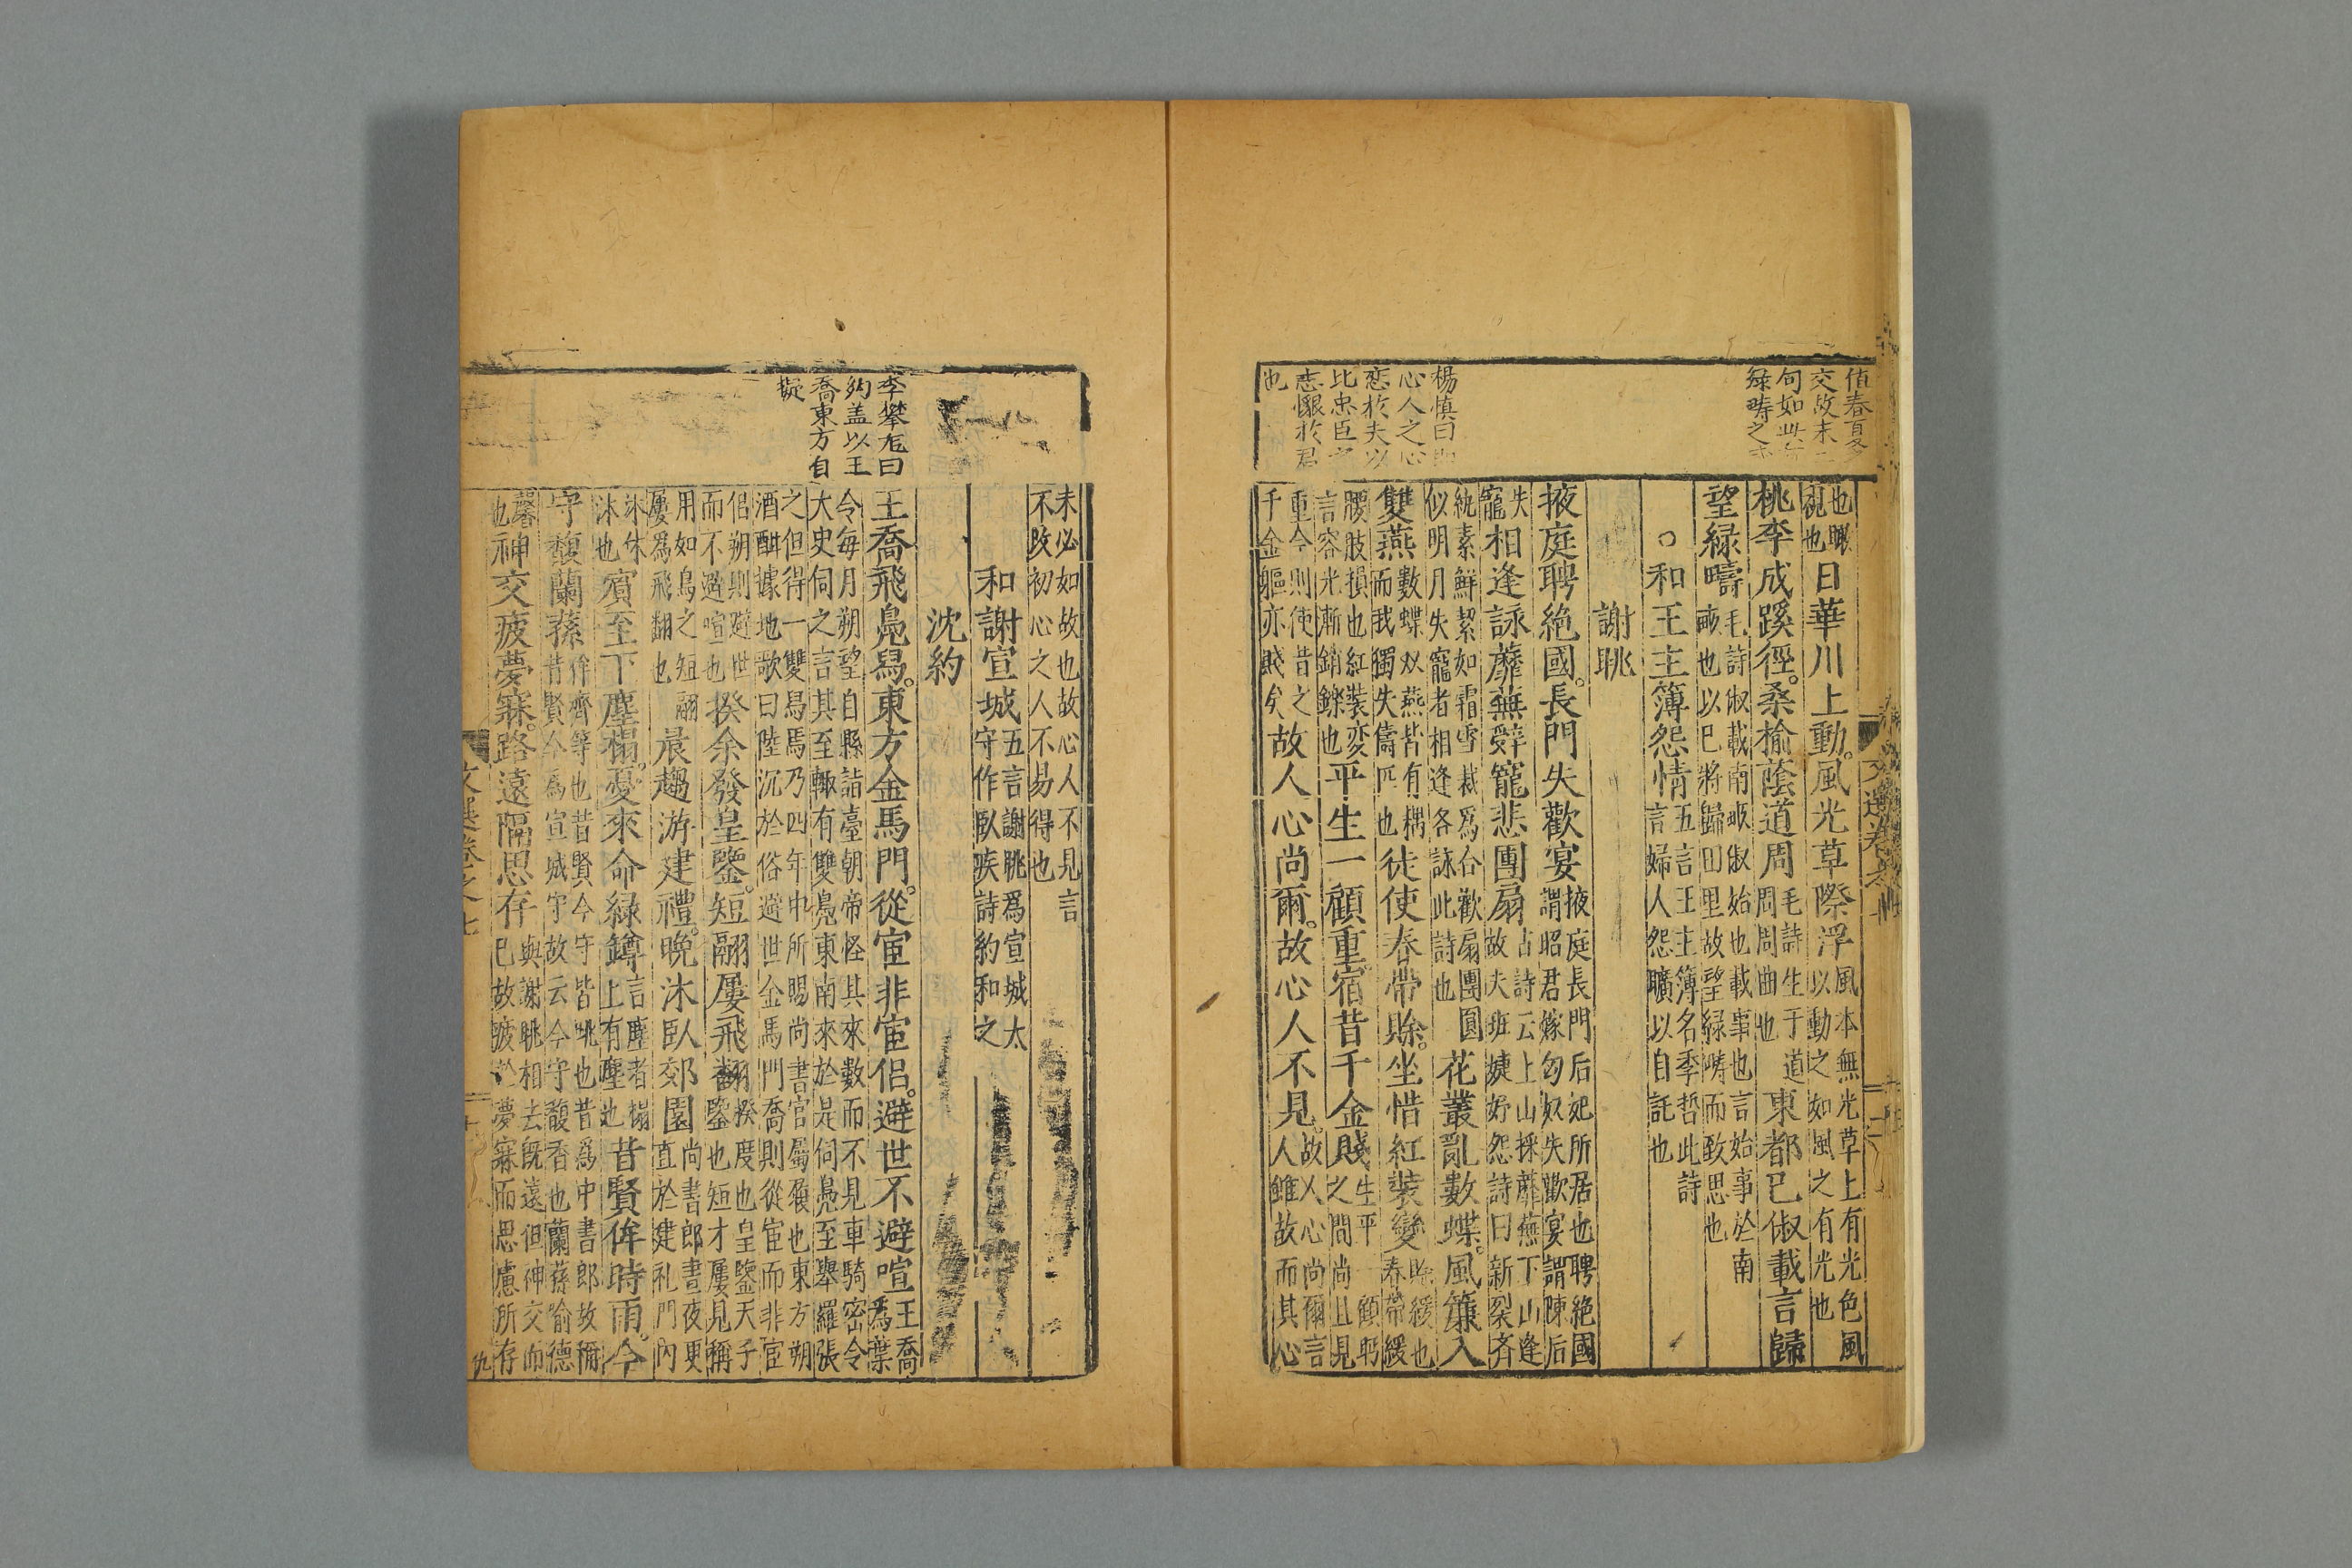 值春夏
交故末
句如此
綠疇之
楊慎曰
心人之心
恋於夫以
比忠臣之
志懷於君
也
視也
日華川上動。風光草際浮
風本無光草上有光色風
以動之如風之有光也
桃李成蹊徑。桑榆蔭道周
毛詩生于道
周周曲也
東都已俶載言歸
望緑疇
毛詩俶載南畝俶始也載事也言始事於南
畝也以巳將歸田里故望緑疇而致思也
○和王主簿怨情
五言王主簿名季哲此詩
言婦人怨曠以自託也
謝眺
掖庭聘絶國。長門失歡宴
掖庭長門后妃所居也聘絶國
謂昭君嫁匈奴失歡宴謂陳后
失
寵
相逢詠蘼蕪辤寵悲團扇
古詩云上山採蘼蕪下山逢
故夫班婕妤怨詩曰新裂齊
紈素鮮絜如霜雪裁爲合歡扇團圓
似明月失寵者相逢各詠此詩也
花叢亂數蝶。風簾入
雙燕
數蝶双燕皆有耦
而我獨失儔匹也
徒使春帶賖。坐惜紅裝變
賖緩也
春帶緩
腰肢損也紅裝変
言容光漸銷鑠也
平生一顧重。宿昔千金賤
生平顧眄
之間尚且見
重今則使昔之
千金軀亦賤矣
故人心尚爾。故心人不見。
故人心尚爾言
人雖故而其心
未必如故也故心人不見言
不改初心之人不易得也
和謝宣城
五言謝眺爲宣城太
守作臥疾詩約和之
沈約
李攀龙曰
約盖以王
喬東方自
擬
王喬飛鳧舄。東方金馬門。從宦非宦侶。避世不避喧
王喬
爲葉
令每月朔望自縣詣臺朝帝怪其來數而不見車騎密令
大史伺之言其至輙有雙鳧東南來於是伺鳧至舉羅張
之但得一雙舄焉乃四年中所賜尚書官屬履也東方朔
酒酣據地歌曰陸沉於俗避世金馬門喬則從宦而非宦
侶朔則避世
而不避喧也
揆余發皇鑒。短翮屢飛翻
揆度也皇鑒天子
鑒也短才屢見稱
用如鳥之短翮
屢爲飛翻也
晨趨游建禮。晩沐臥郊園
尚書郎晝夜更
直於建礼門內
沐休
沐也
賓至下塵榻。憂來命緑鐏
言塵者榻
上有塵也
昔賢侔時雨。今
守馥蘭蓀
侔齊等也昔賢今守皆眺也昔爲中書郎故稱
昔賢今爲宣城守故云今守馥香也蘭蓀喻德
馨
也
神交疲夢寐。路遠隔思存
與謝眺相去既遠但神交而
已故疲於夢寐而思慮所存
文選卷之七